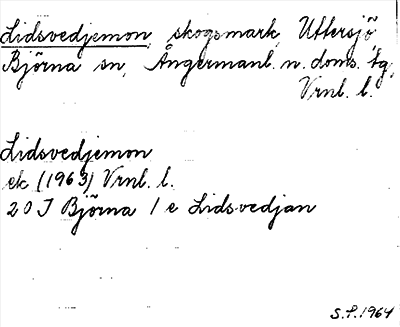 Lidsvedjemon, skogsmark, Uttersjö,
Björna sn, Ångermanl. n. doms. tg,
Vrnl. l.
Lidsvedjemon
ek (1963) Vrnl. l.
20 J Björna 1 e Lidsvedjan
S.F. 1964